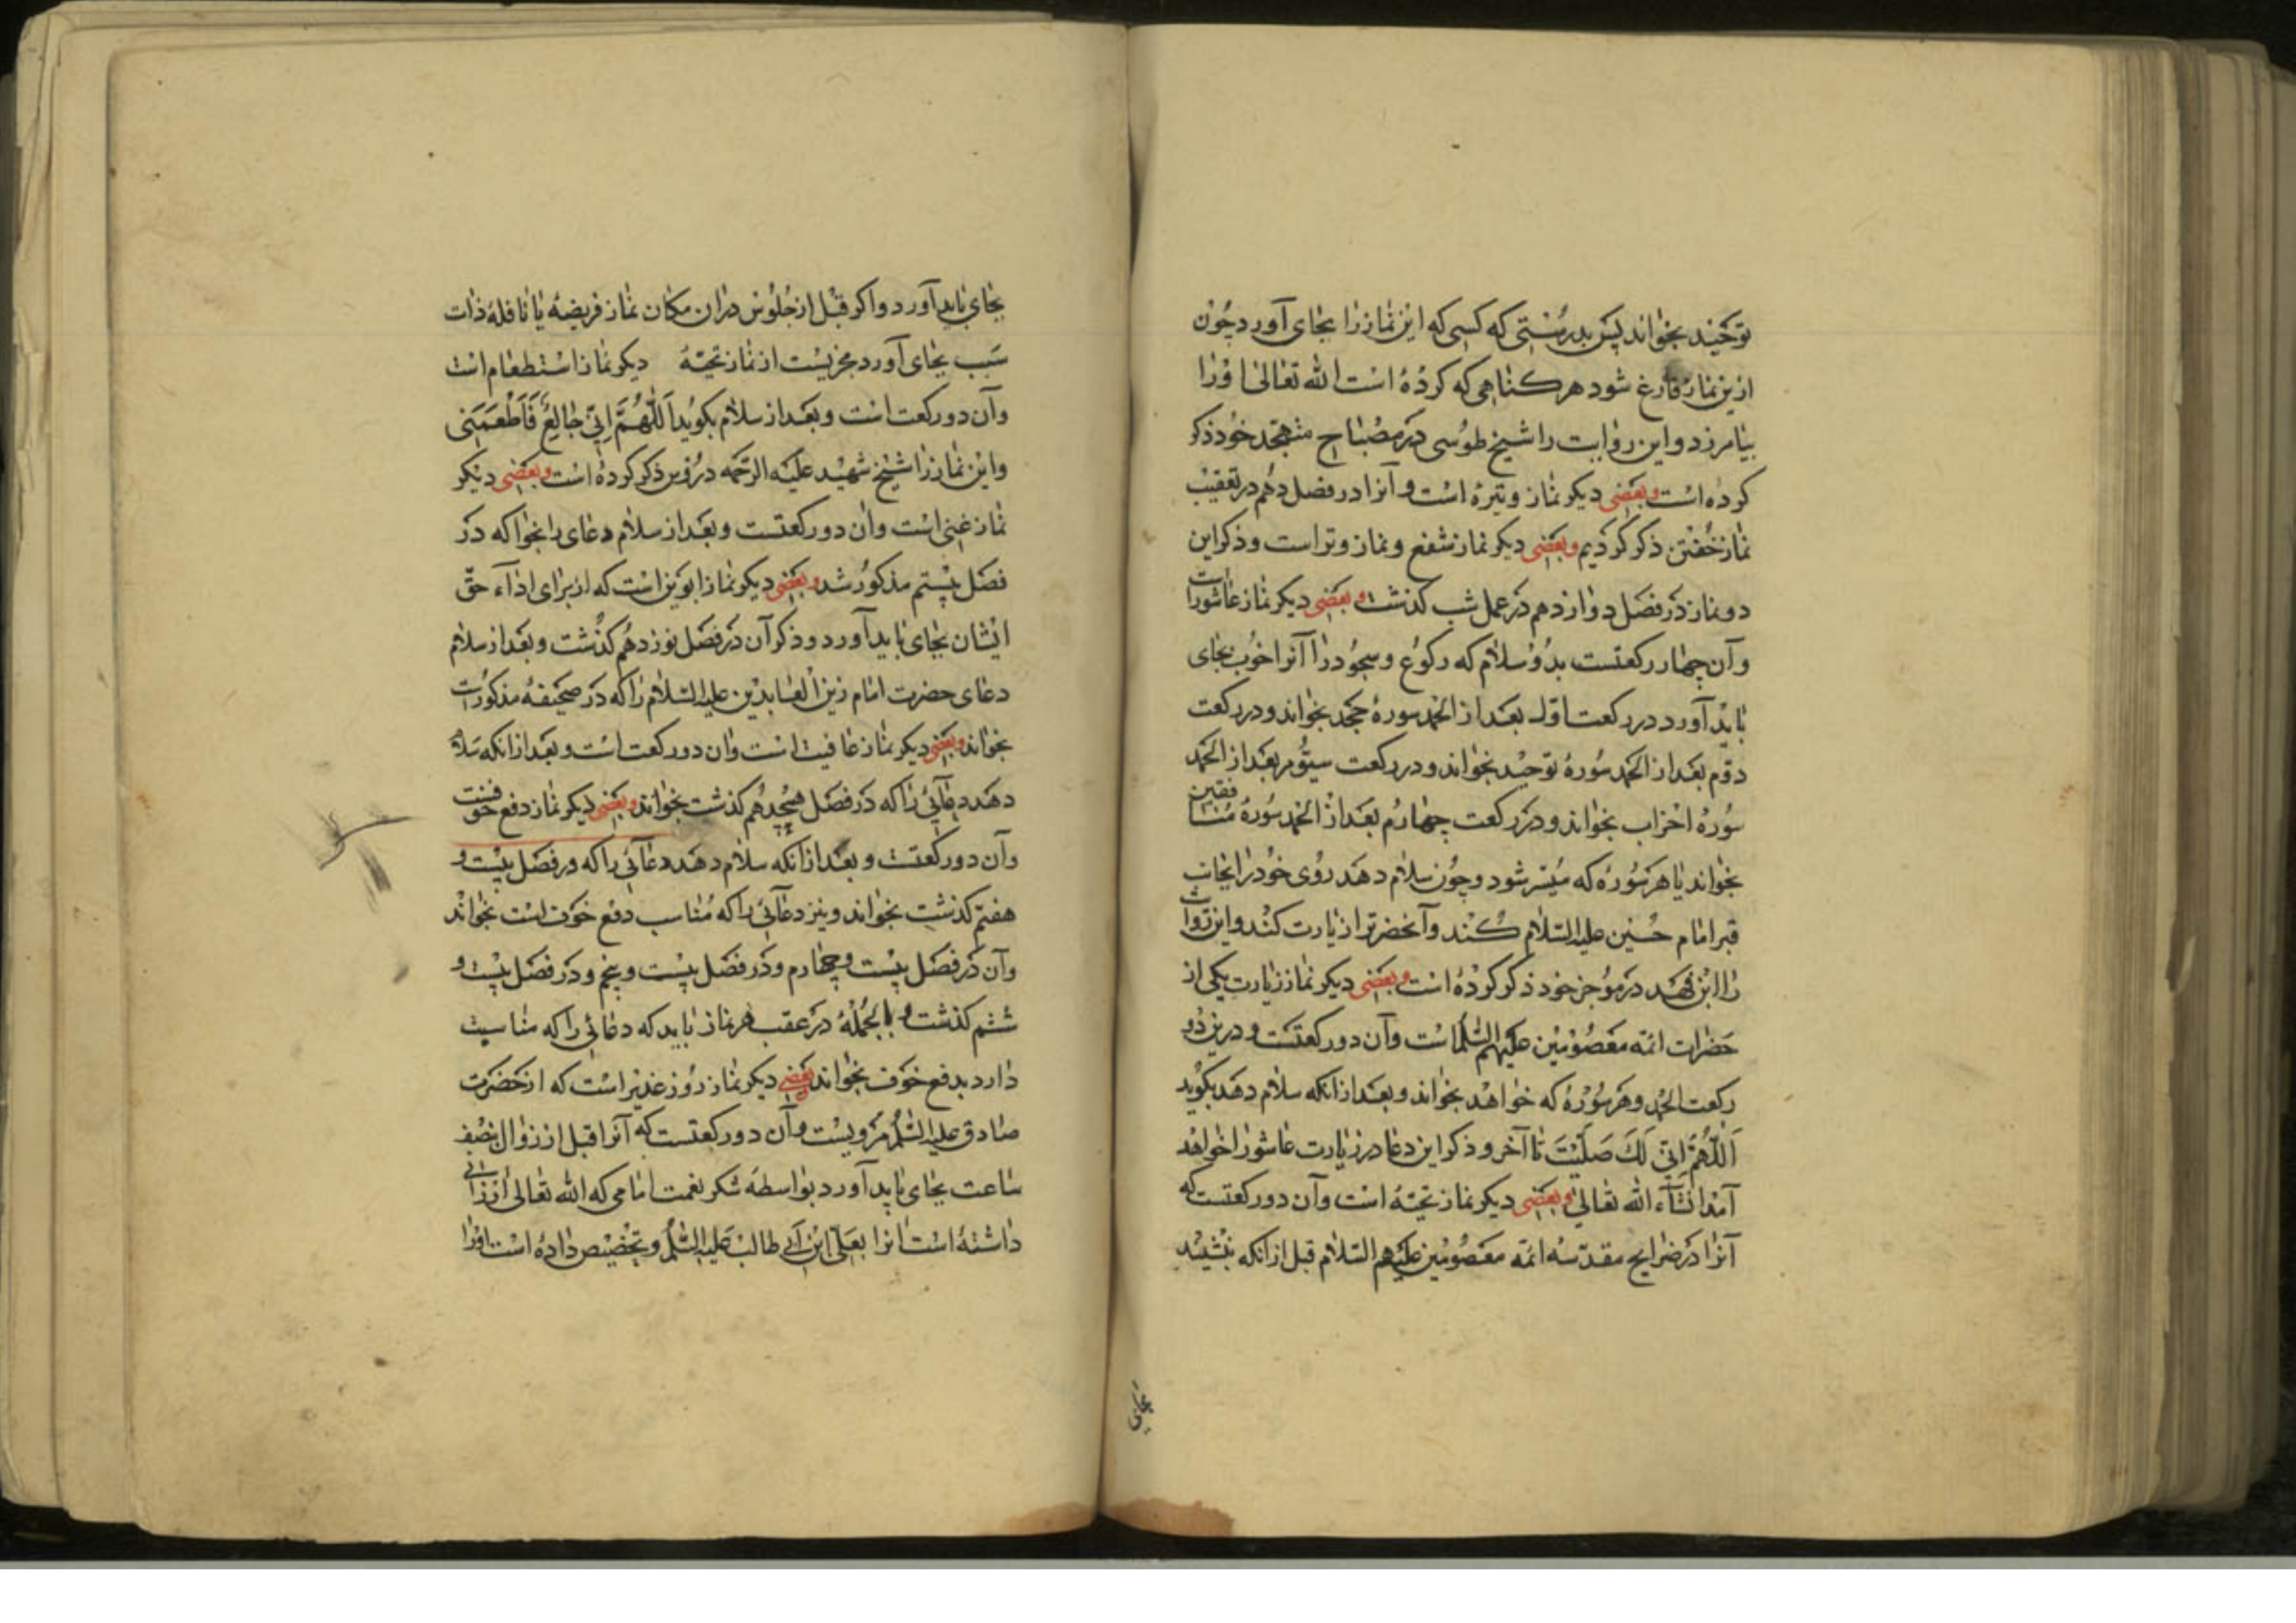 توحید بخواند پس بدرستی که کسی که این نماز را بجای آورد چون
ازین نماز فارغ شود هر کناهی که کرده است الله تعالی اورا
بیامرزد و این روایت را شیخ طوسی در مصباح متهجد خود ذکر
کرده است وبعضی دیکر نماز وتیره است و آنرا در فصل دهم در تعقیب
نماز خفتن ذکر کردیم وبعضی دیکر نماز شفع و نماز وتر است و ذکر این
دو نماز در فصل دوازدهم در عمل شب کذشت وبعضی دیکر نماز عاشورا است
و آن چهار رکعتست بدو سلام که رکوع و سجود را آنرا خوب بجای
باید آورد در رکعت اول بعد از الحمد سورهٔ جحد بخواند و در رکعت
دوم بعد از الحمد سورهٔ توحید بخواند و در رکعت سیوم بعد از الحمد
سورهٔ احزاب بخواند و در رکعت چهارم بعد از الحمد سورهٔ منافقین
بخواند یا هر سوره که میسر شود و چون سلام دهد روی خود را بجانب
قبر امام حسین علیه السلام کند و آنحضرترا زیارت کند و این روایت
را ابن فهد در موجز خود ذکر کرده است وبعضی دیکر نماز زیارت یکی از
حضرات ائمه معصومین علیهم السلام است و آن دو رکعتست و درین دو
رکعت الحمد و هر سوره که خواهد بخواند و بعد از انکه سلام دهد بکوید
اَللّهُمَّ اِنّی لَكَ صَلَّیْتَ تا آخر و ذکر این دعا در زیارت عاشورا خواهد
آمد انشآء الله تعالی وبعضی دیکر نماز تحیّه است و آن دو رکعتست که
آنرا در ضرایح مقدّسه ائمّه معصومین علیهم السلام قبل از انکه بنشیند
بجای
بجای باید آورد و اکر قبل از جلوس دران مکان نماز فریضه یا نافلهٔ ذات
سبب بجای آورد مجزیست از نماز تحیّة دیکر نماز استطعام است
و آن دو رکعت است و بعد از سلام بکوید اَللّهُمَّ اِنّی جٰائِعٌ فَاَطْعِمْنی
و این نماز را شیخ شهید علیه الرحمه در ذکر کرده است وبعضی دیکر
نماز غنی است و آن دو رکعتست و بعد از سلام دعای را بخوا که در
فصل بیستم مذکور شد وبعضی دیکر نماز ابوین است که از برای ادآء حقّ
ایشان بجای باید آورد و ذکر آن در فصل نوزدهم کذشت و بعد از سلام
دعای حضرت امام زین العابدین علیه السلام را که در صحیفه مذکور است
بخواند وبعضی دیکر نماز عافیت است و آن دو رکعت است و بعد از انکه سلام
دهد دعآئی را که در فصل هیجدهم کذشت بخواند وبعضی دیکر نماز دفع خوفست
و آن دو رکعتست و بعد از انکه سلام دهد دعائی را که در فصل بیست و
هفتم کذشت بخواند و نیز دعآئی را که مناسب دفع خوف است بخواند
و آن در فصل بیست و چهارم و در فصل بیست و پنجم و در فصل بیست و
ششم کذشت و بالجمله در عقب هر نماز باید که دعائی را که مناسبت
دارد بدفع خوف بخواند وبعضی دیکر نماز روز غدیر است که از حضرت
صادق علیه السلام مرویست و آن دو رکعتست که آنرا قبل از زوال بنصف
ساعت بجای باید آورد بواسطه شکر نعمت امامی که الله تعالی ارزانی
داشته است انرا بعلی ابن ابی طالب علیه السلام و تخصیص داده است اورا